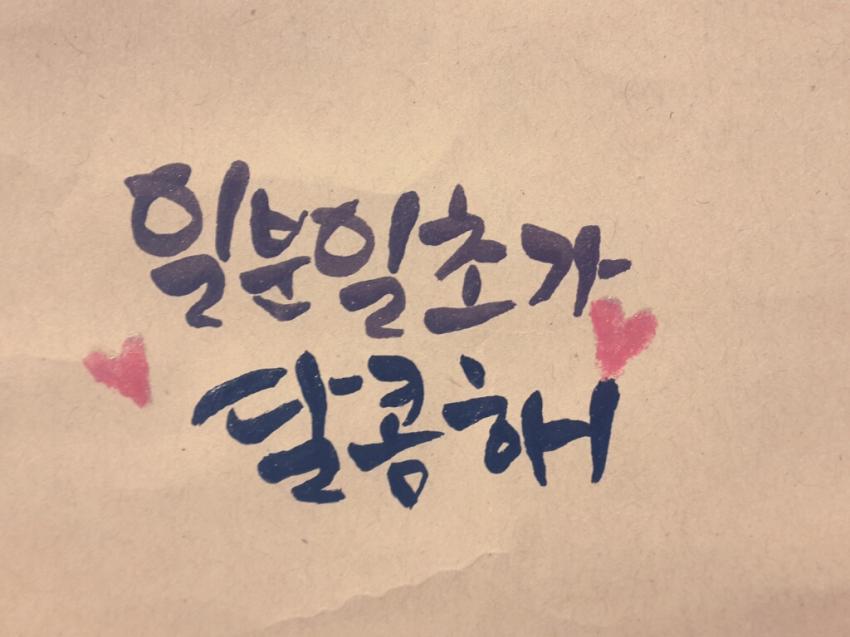 일분일초가
달콤해